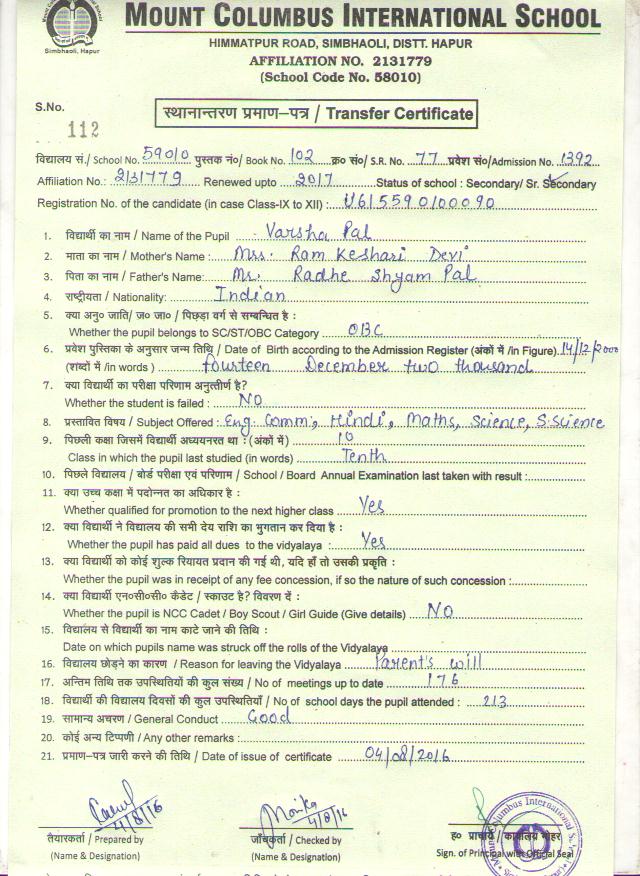 Simbhaoli, Hapur
MOUNT COLUMBUS INTERNATIONAL SCHOOL
HIMMATPUR ROAD, SIMBHAOLI, DISTT. HAPUR
AFFILIATION NO. 2131779
(School Code No. 58010)
S.No.
112
स्थानान्तरण प्रमाण-पत्र / Transfer Certificate
विद्यालय सं./ School No. 59010 पुस्तक नं०/ Book No. 102 क्र० सं०/ S.R. No. 77 प्रवेश सं०/Admission No. 1392
Affiliation No.: 2131779 Renewed upto 2017 Status of school : Secondary/ Sr. Secondary
Registration No. of the candidate (in case Class-IX to XII) : U615590100090
1. विद्यार्थी का नाम / Name of the Pupil Varsha Pal
2. माता का नाम / Mother's Name : Mrs. Ram Keshari Devi
3. पिता का नाम / Father's Name: Mr. Radhe Shyam Pal
4. राष्ट्रीयता / Nationality: Indian
5. क्या अनु० जाति/ ज० जा० / पिछड़ा वर्ग से सम्बन्धित है :
Whether the pupil belongs to SC/ST/OBC Category OBC
6. प्रवेश पुस्तिका के अनुसार जन्म तिथि / Date of Birth according to the Admission Register (अंकों में /in Figure). 14/12/2000
(शब्दों में /in words ) fourteen December two thousand
7. क्या विद्यार्थी का परीक्षा परिणाम अनुत्तीर्ण है?
Whether the student is failed : NO
8. प्रस्तावित विषय / Subject Offered : Eng. Comm., Hindi, Maths, Science, S.science
9. पिछली कक्षा जिसमें विद्यार्थी अध्ययनरत था : (अंकों में ) 10
Class in which the pupil last studied (in words) Tenth
10. पिछले विद्यालय / बोर्ड परीक्षा एवं परिणाम / School / Board Annual Examination last taken with result :
11. क्या उच्च कक्षा में पदोन्नत का अधिकार है :
Whether qualified for promotion to the next higher class Yes
12. क्या विद्यार्थी ने विद्यालय की सभी देय राशि का भुगतान कर दिया है :
Whether the pupil has paid all dues to the vidyalaya : Yes
13. क्या विद्यार्थी को कोई शुल्क रियायत प्रदान की गई थी, यदि हाँ तो उसकी प्रकृति :
Whether the pupil was in receipt of any fee concession, if so the nature of such concession :
14. क्या विद्यार्थी एन०सी०सी० कैडेट / स्काउट है? विवरण दें :
Whether the pupil is NCC Cadet / Boy Scout / Girl Guide (Give details) NO
15. विद्यालय से विद्यार्थी का नाम काटे जाने की तिथि :
Date on which pupils name was struck off the rolls of the Vidyalaya
16. विद्यालय छोड़ने का कारण / Reason for leaving the Vidyalaya Parent's will
17. अन्तिम तिथि तक उपस्थितियों की कुल संख्य / No of meetings up to date 176
18. विद्यार्थी की विद्यालय दिवसों की कुल उपस्थितियाँ / No of school days the pupil attended : 213
19. सामान्य अचरण / General Conduct Good
20. कोई अन्य टिप्पणी / Any other remarks :
21. प्रमाण-पत्र जारी करने की तिथि / Date of issue of certificate 04/08/2016
4/8/16 Monika 4/8/16
तैयारकर्ता / Prepared by जाँचकर्ता / Checked by ह० प्राचार्य / कार्यालय मोहर
(Name & Designation) (Name & Designation) Sign. of Principal with Official Seal